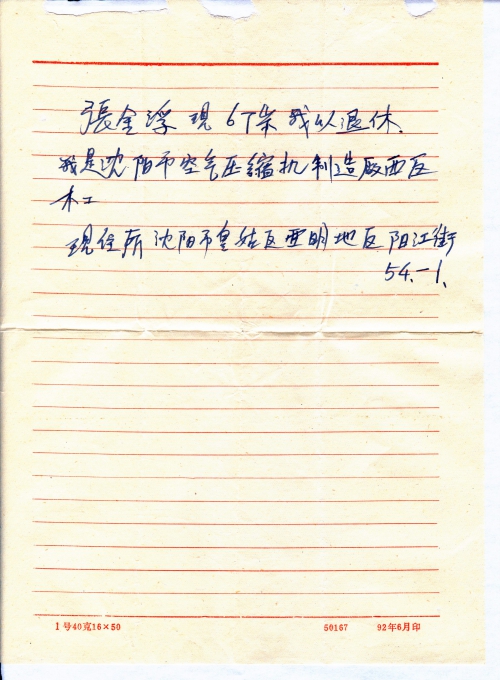 張金浮 现 67岁 我以退休.
我是沈阳市空气压缩机制造厰西区
木工
现住所 沈阳市皇姑区亜明地区 阳江街
54.-1.
1号40克16×50 50167 92年6月印